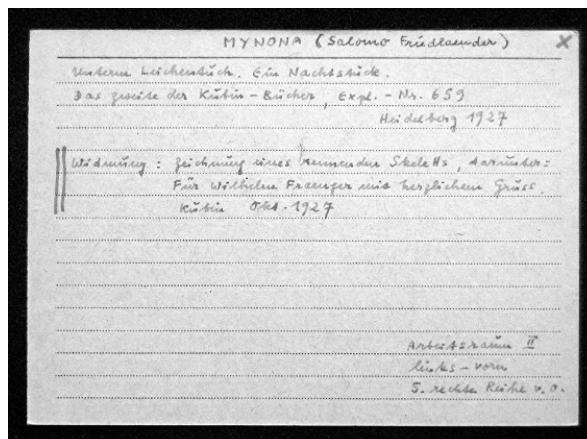 MYNONA (Salomo Friedlaender) X
Unterm Leichentuch. Ein Nachtstück.
Das zweite der Kubin-Bücher, Expl.-Nr. 659
Heidelberg 1927
Widmung: Zeichnung eines rennenden Skeletts, darunter:
Für Wilhelm Fraenger mit herzlichem Gruss.
Kubin Okt. 1927
Arbeitsraum II
links-vorn
5. rechte Reihe v.o.